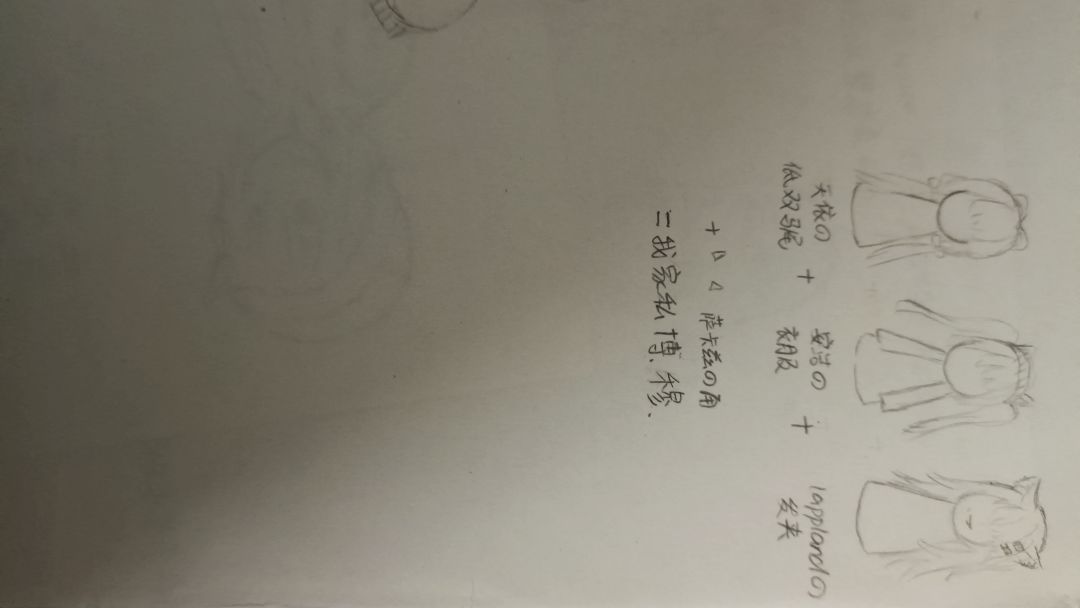 天依の
低双马尾
+
安洁の
衣服
+
lapplandの
发夹
+ 萨卡兹の角
=我家私博、穆、